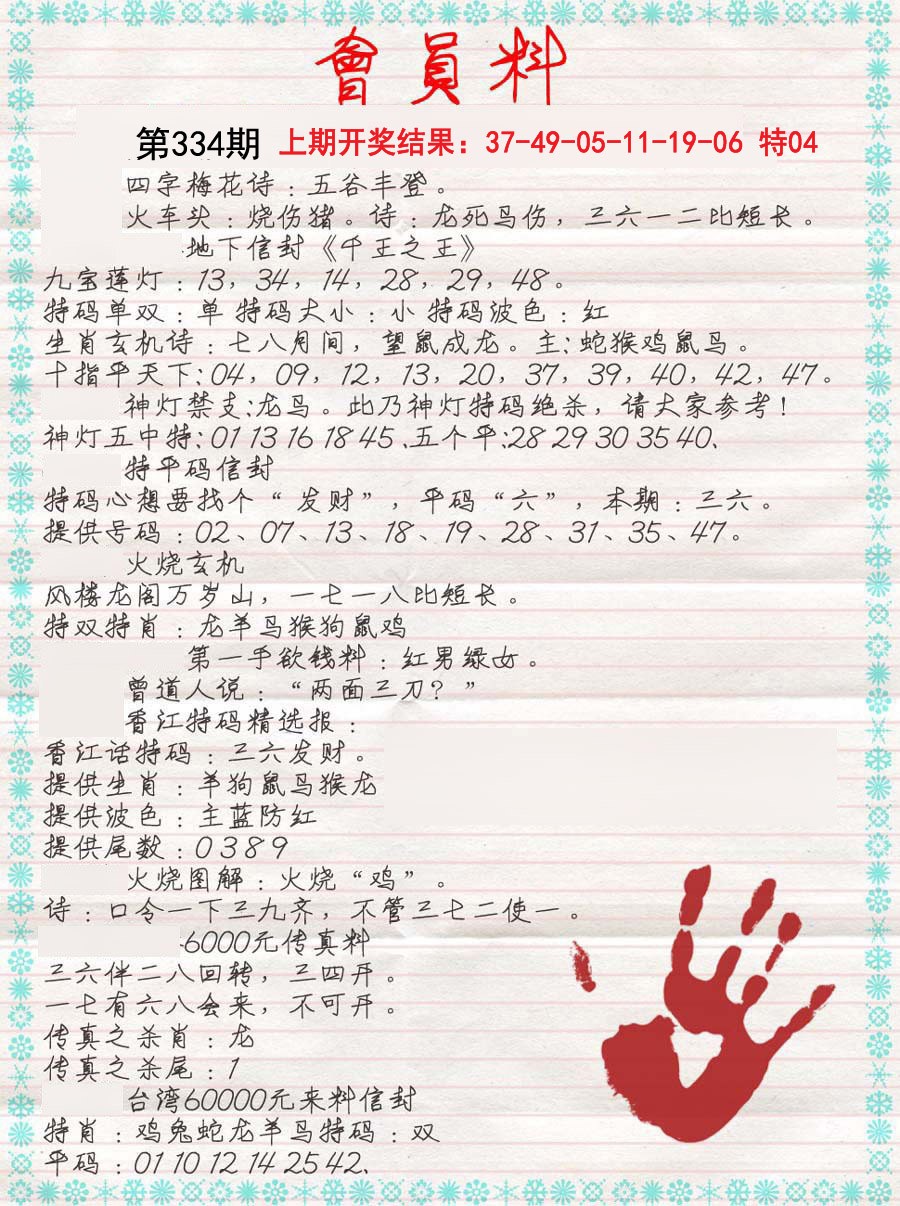 會員料
第334期 上期开奖结果：37-49-05-11-19-06 特04
四字梅花诗：五谷丰登。
火车头：烧伤猪。诗：龙死鸟伤，三六一二比短长。
地下信封《千王之王》
九宝莲灯：13，34，14，28，29，48。
特码单双：单 特码大小：小 特码波色：红
生肖玄机诗：七八月间，望鼠成龙。主：蛇猴鸡鼠鸟。
十指平天下：04，09，12，13，20，37，39，40，42，47。
神灯禁支：龙鸟。此乃神灯特码绝杀，请大家参考！
神灯五中特：01 13 16 18 45、五个平：28 29 30 35 40、
特平码信封
特码心想要找个“发财”，平码“六”，本期：三六。
提供号码：02、07、13、18、19、28、31、35、47。
火烧玄机
风楼龙阁万岁山，一七一八比短长。
特双特肖：龙羊鸟猴狗鼠鸡
第一手欲钱料：红男绿女。
曾道人说：“两面三刀？”
香江特码精选报：
香江话特码：三六发财。
提供生肖：羊狗鼠鸟猴龙
提供波色：主蓝防红
提供尾数：0 3 8 9
火烧图解：火烧“鸡”。
诗：口令一下三九齐，不管三七二使一。
6000元传真料
三六伴二八回转，三四开。
一七有六八会来，不可开。
传真之杀肖：龙
传真之杀尾：1
台湾60000元来料信封
特肖：鸡兔蛇龙羊鸟特码：双
平码：01 10 12 14 25 42、